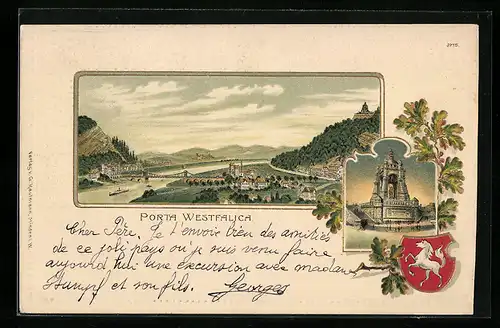 2975.
PORTA WESTFALICA
Cher Père. Je t'envoie bien des amitiés
de ce joli pays où je suis venu faire
aujourd'hui une excursion avec madame
Stumpf et son fils. Georges